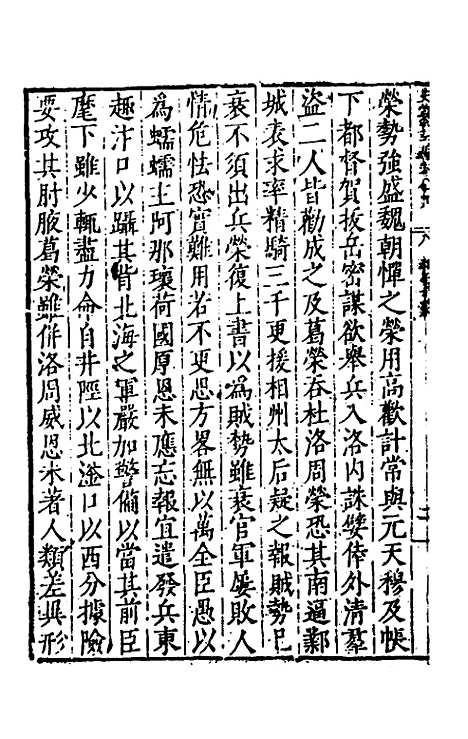 榮勢強盛魏朝憚之榮用高歡計常與元天穆及帳
下都督賀拔岳密謀欲舉兵入洛内誅嬖倖外清羣
盜二人皆勸成之及葛榮吞杜洛周榮恐其南逼鄴
城表求率精騎三千更援相州太后疑之報賊勢已
衰不須出兵榮復上書以爲賊勢雖衰官軍屢敗人
情危怯恐實難用若不更思方畧無以萬全臣愚以
爲蠕蠕主阿那瓌荷國厚恩未應忘報宜遣發兵東
趣汴口以躡其背北海之軍嚴加警備以當其前臣
麾下雖少輒盡力命自井陘以北滏口以西分據險
要攻其肘腋葛榮雖併洛周威恩未著人類差異形